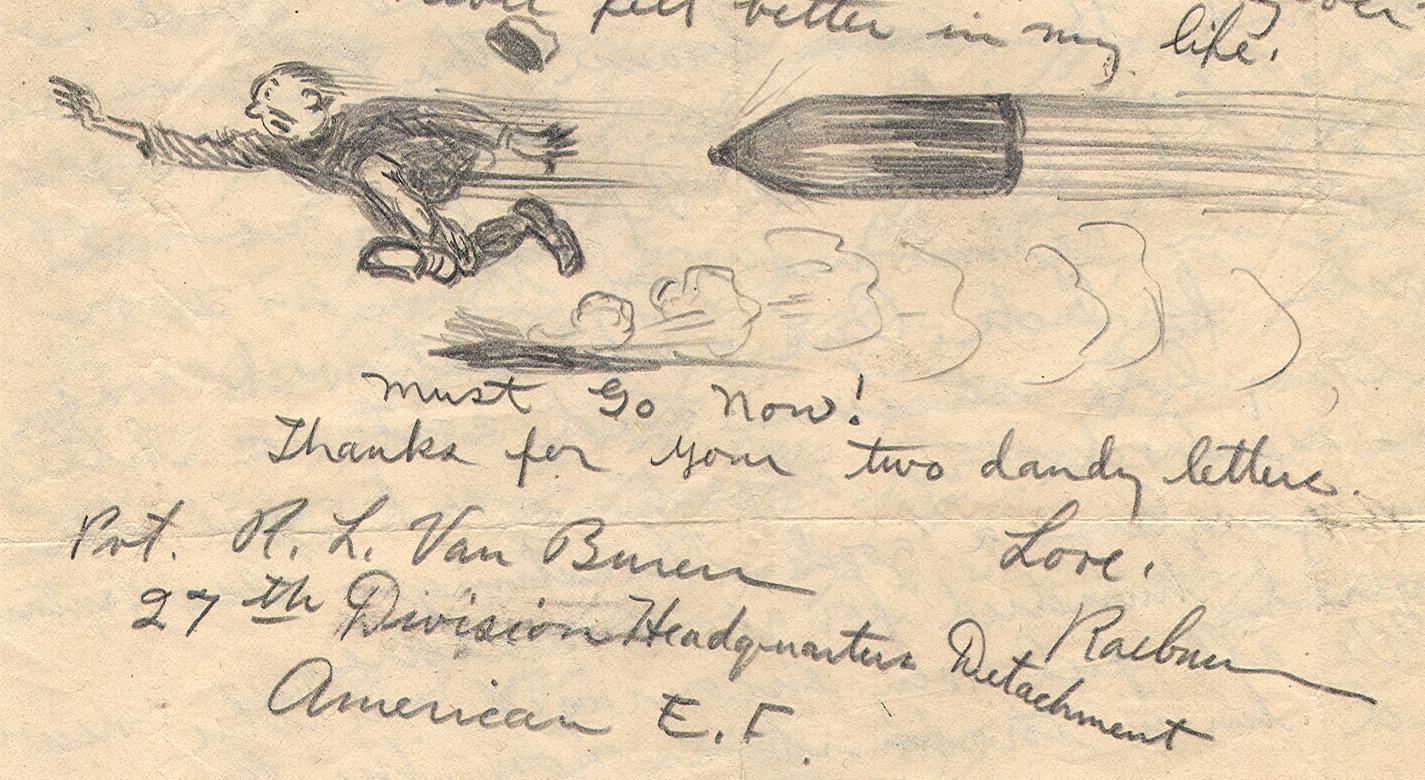 never felt better in my life.
Must Go Now!
Thanks for your two dandy letters.
Love.
Raeburn
Pvt. R. L. Van Buren
27th Division Headquarters Detachment
American E. F.